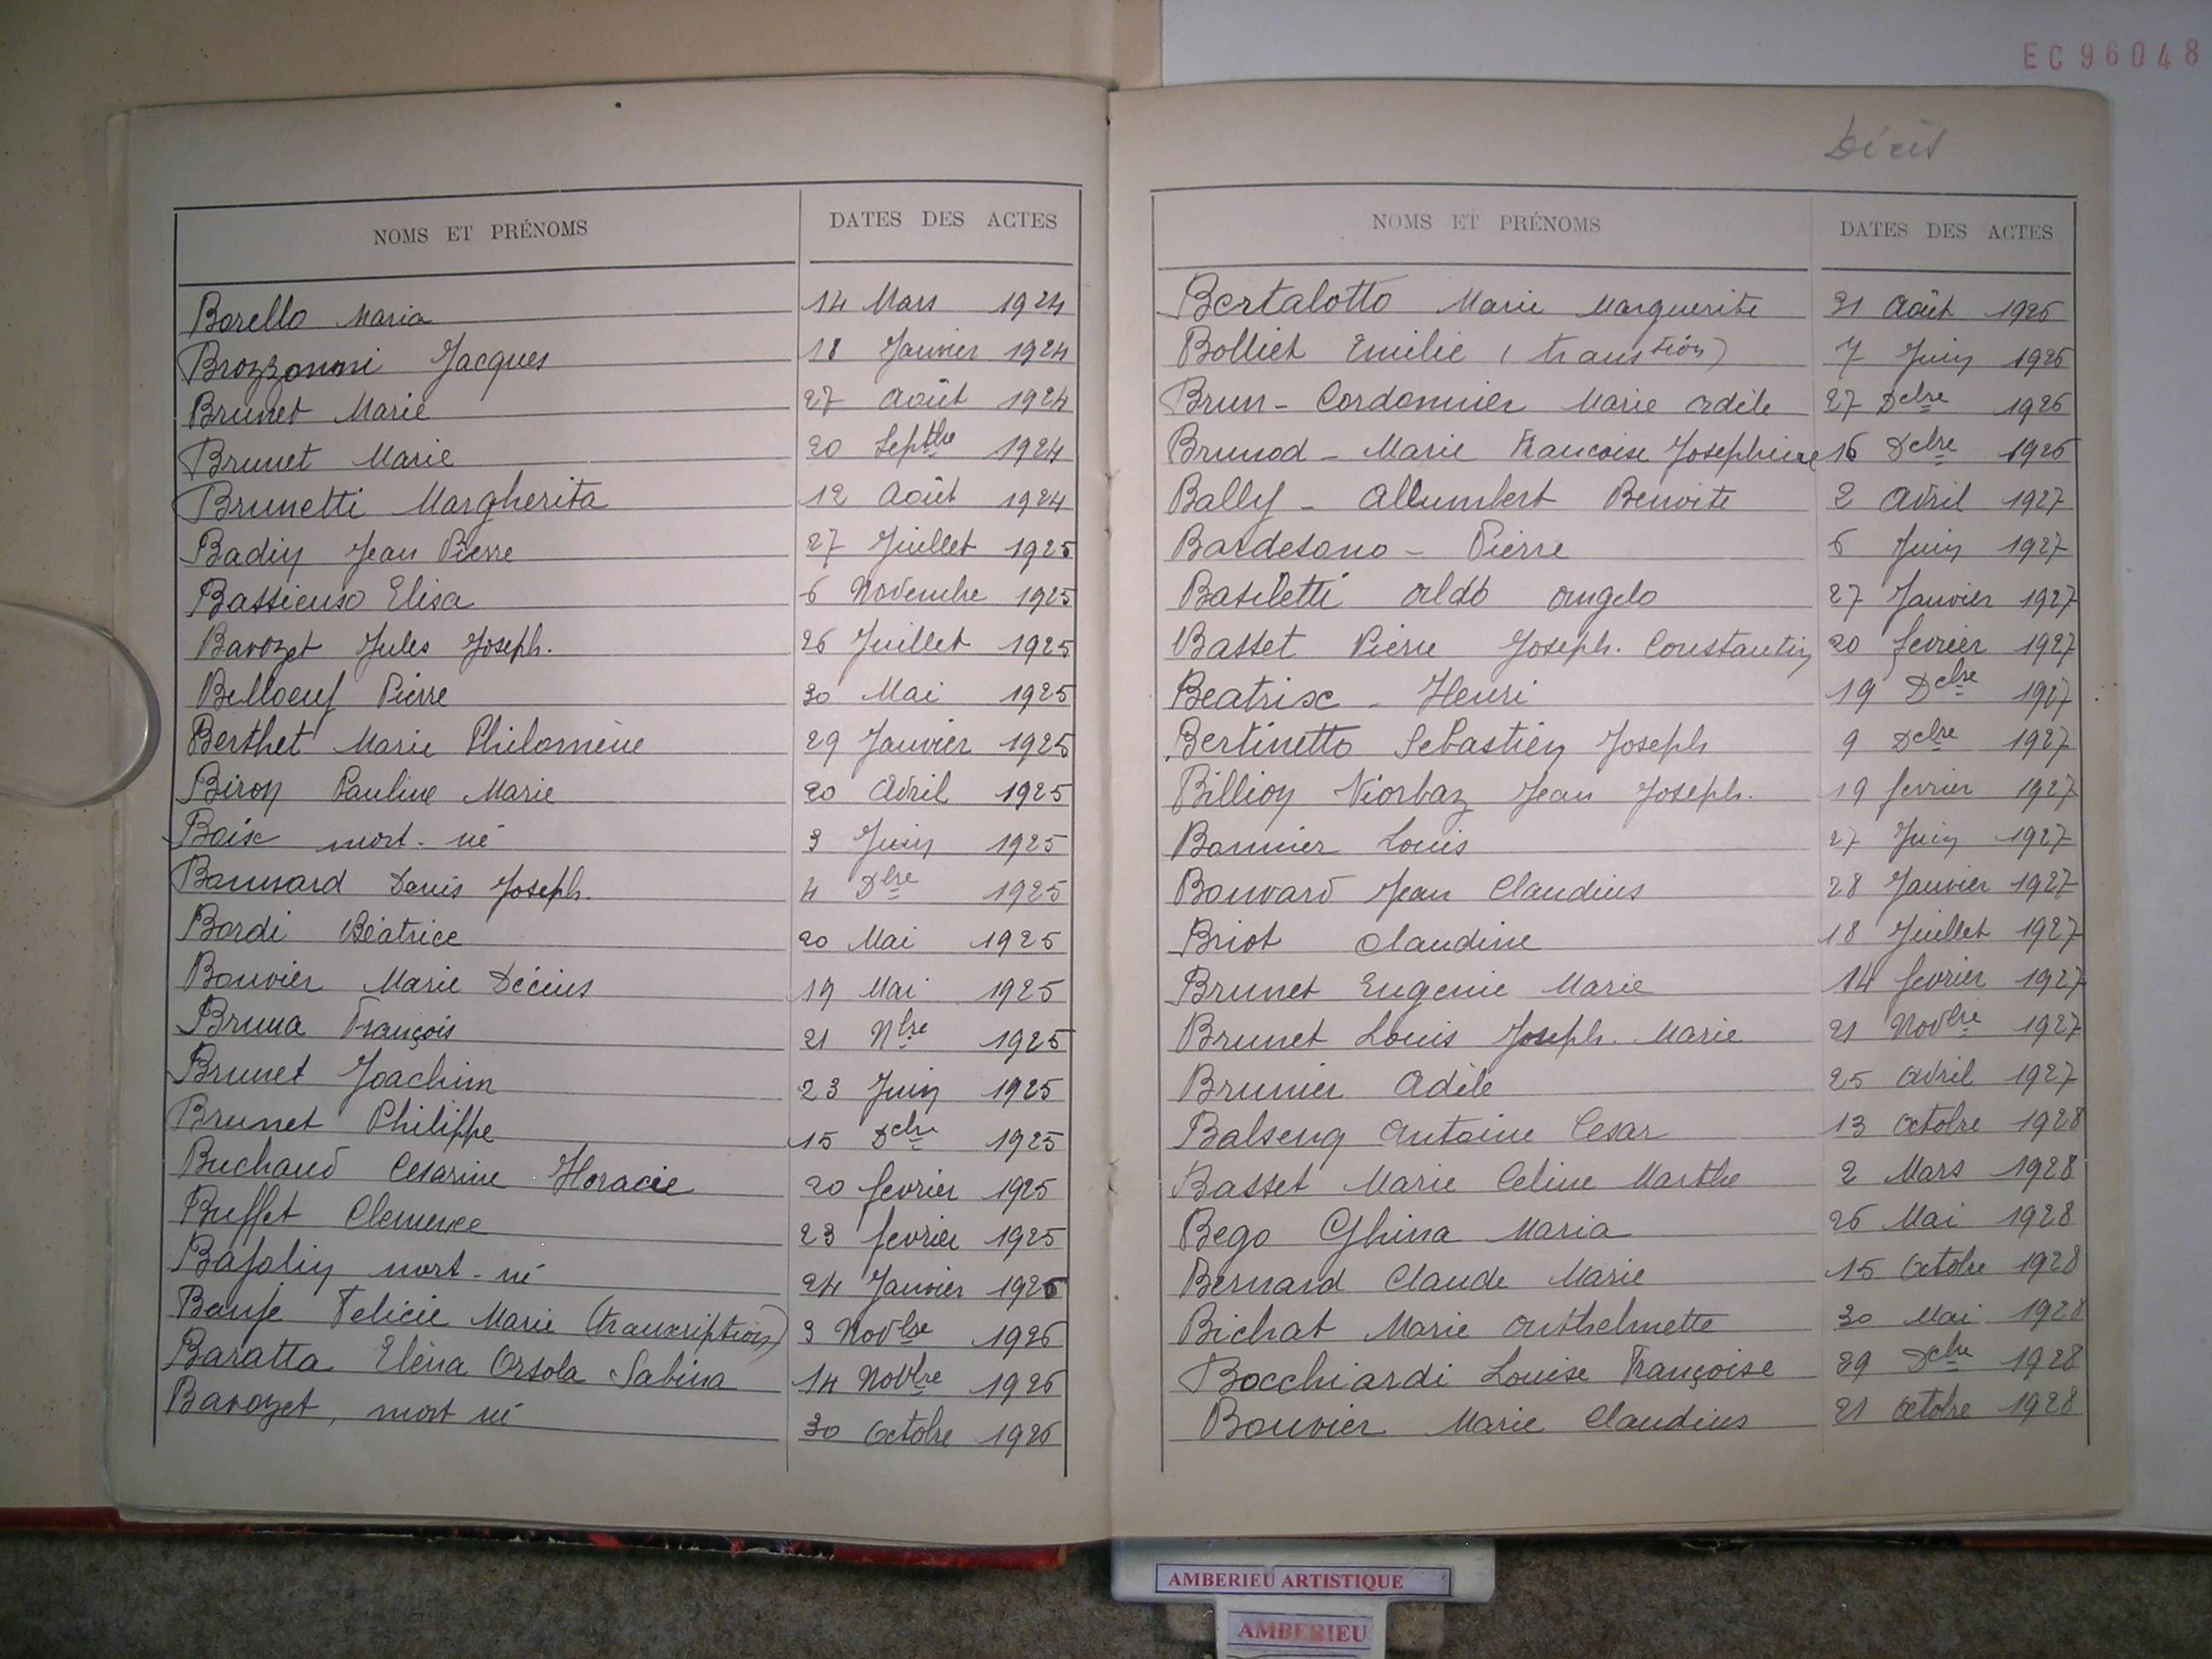 EC96048
Décès
NOMS ET PRÉNOMS DATES DES ACTES
Borello Maria 14 Mars 1924
Brozzonni Jacques 18 Janvier 1924
Brunet Marie 27 Août 1924
Brunet Marie 20 Septbre 1924
Brunetti Margherita 12 Août 1924
Badin Jean Pierre 27 Juillet 1925
Bassieuso Elisa 6 Novembre 1925
Bavozet Jules Joseph. 26 Juillet 1925
Belloeuf Pierre 30 Mai 1925
Berthet Marie Philomène 29 Janvier 1925
Biron Pauline Marie 20 Avril 1925
Boix mort-né 3 Juin 1925
Bonnard Denis Joseph. 4 Dbre 1925
Bordi Béatrice 20 Mai 1925
Bouvier Marie Décius 19 Mai 1925
Bruna François 21 Nbre 1925
Brunet Joachim 23 Juin 1925
Brunet Philippe 15 Dcbre 1925
Buchaud Cesarine Horacie 20 fevrier 1925
Buffet Clemence 23 fevrier 1925
Bafolin mort-né 24 Janvier 1926
Banfe Felicie Marie (transcription) 3 Novbre 1926
Baratta Eléna Orsola Sabina 14 Novbre 1926
Bavozet, mort né 30 Octobre 1926
NOMS ET PRÉNOMS DATES DES ACTES
Bertalotto Marie Marguerite 31 Août 1926
Bolliet Emilie (transtion) 7 Juin 1926
Brun-Cordonnier Marie Adèle 27 Dcbre 1926
Brunod-Marie Francoise Josephine 16 Dcbre 1926
Bally-Allumbert Benoite 2 Avril 1927
Bardesono-Pierre 6 Juin 1927
Basiletti Aldo Angelo 27 Janvier 1927
Basset Pierre Joseph. Constantin 20 fevrier 1927
Beatrix-Henri 19 Dcbre 1927
Bertinetto Sebastien Joseph 9 Dcbre 1927
Billion Viorbaz Jean Joseph. 19 fevrier 1927
Bonnier Louis 27 Juin 1927
Bouvard Jean Claudius 28 Janvier 1927
Briot Claudine 18 Juillet 1927
Brunet Eugenie Marie 14 fevrier 1927
Brunet Louis Joseph. Marie 21 Novbre 1927
Brunier Adèle 25 Avril 1927
Balseng Antoine Cesar 13 Octobre 1928
Basset Marie Celine Marthe 2 Mars 1928
Bego Ghina Maria 26 Mai 1928
Bernard Claude Marie 15 Octobre 1928
Bichat Marie Anthelmette 30 Mai 1928
Bocchiardi Louise Françoise 29 Dcbre 1928
Bouvier Marie Claudius 21 Octobre 1928
AMBERIEU ARTISTIQUE
AMBERIEU